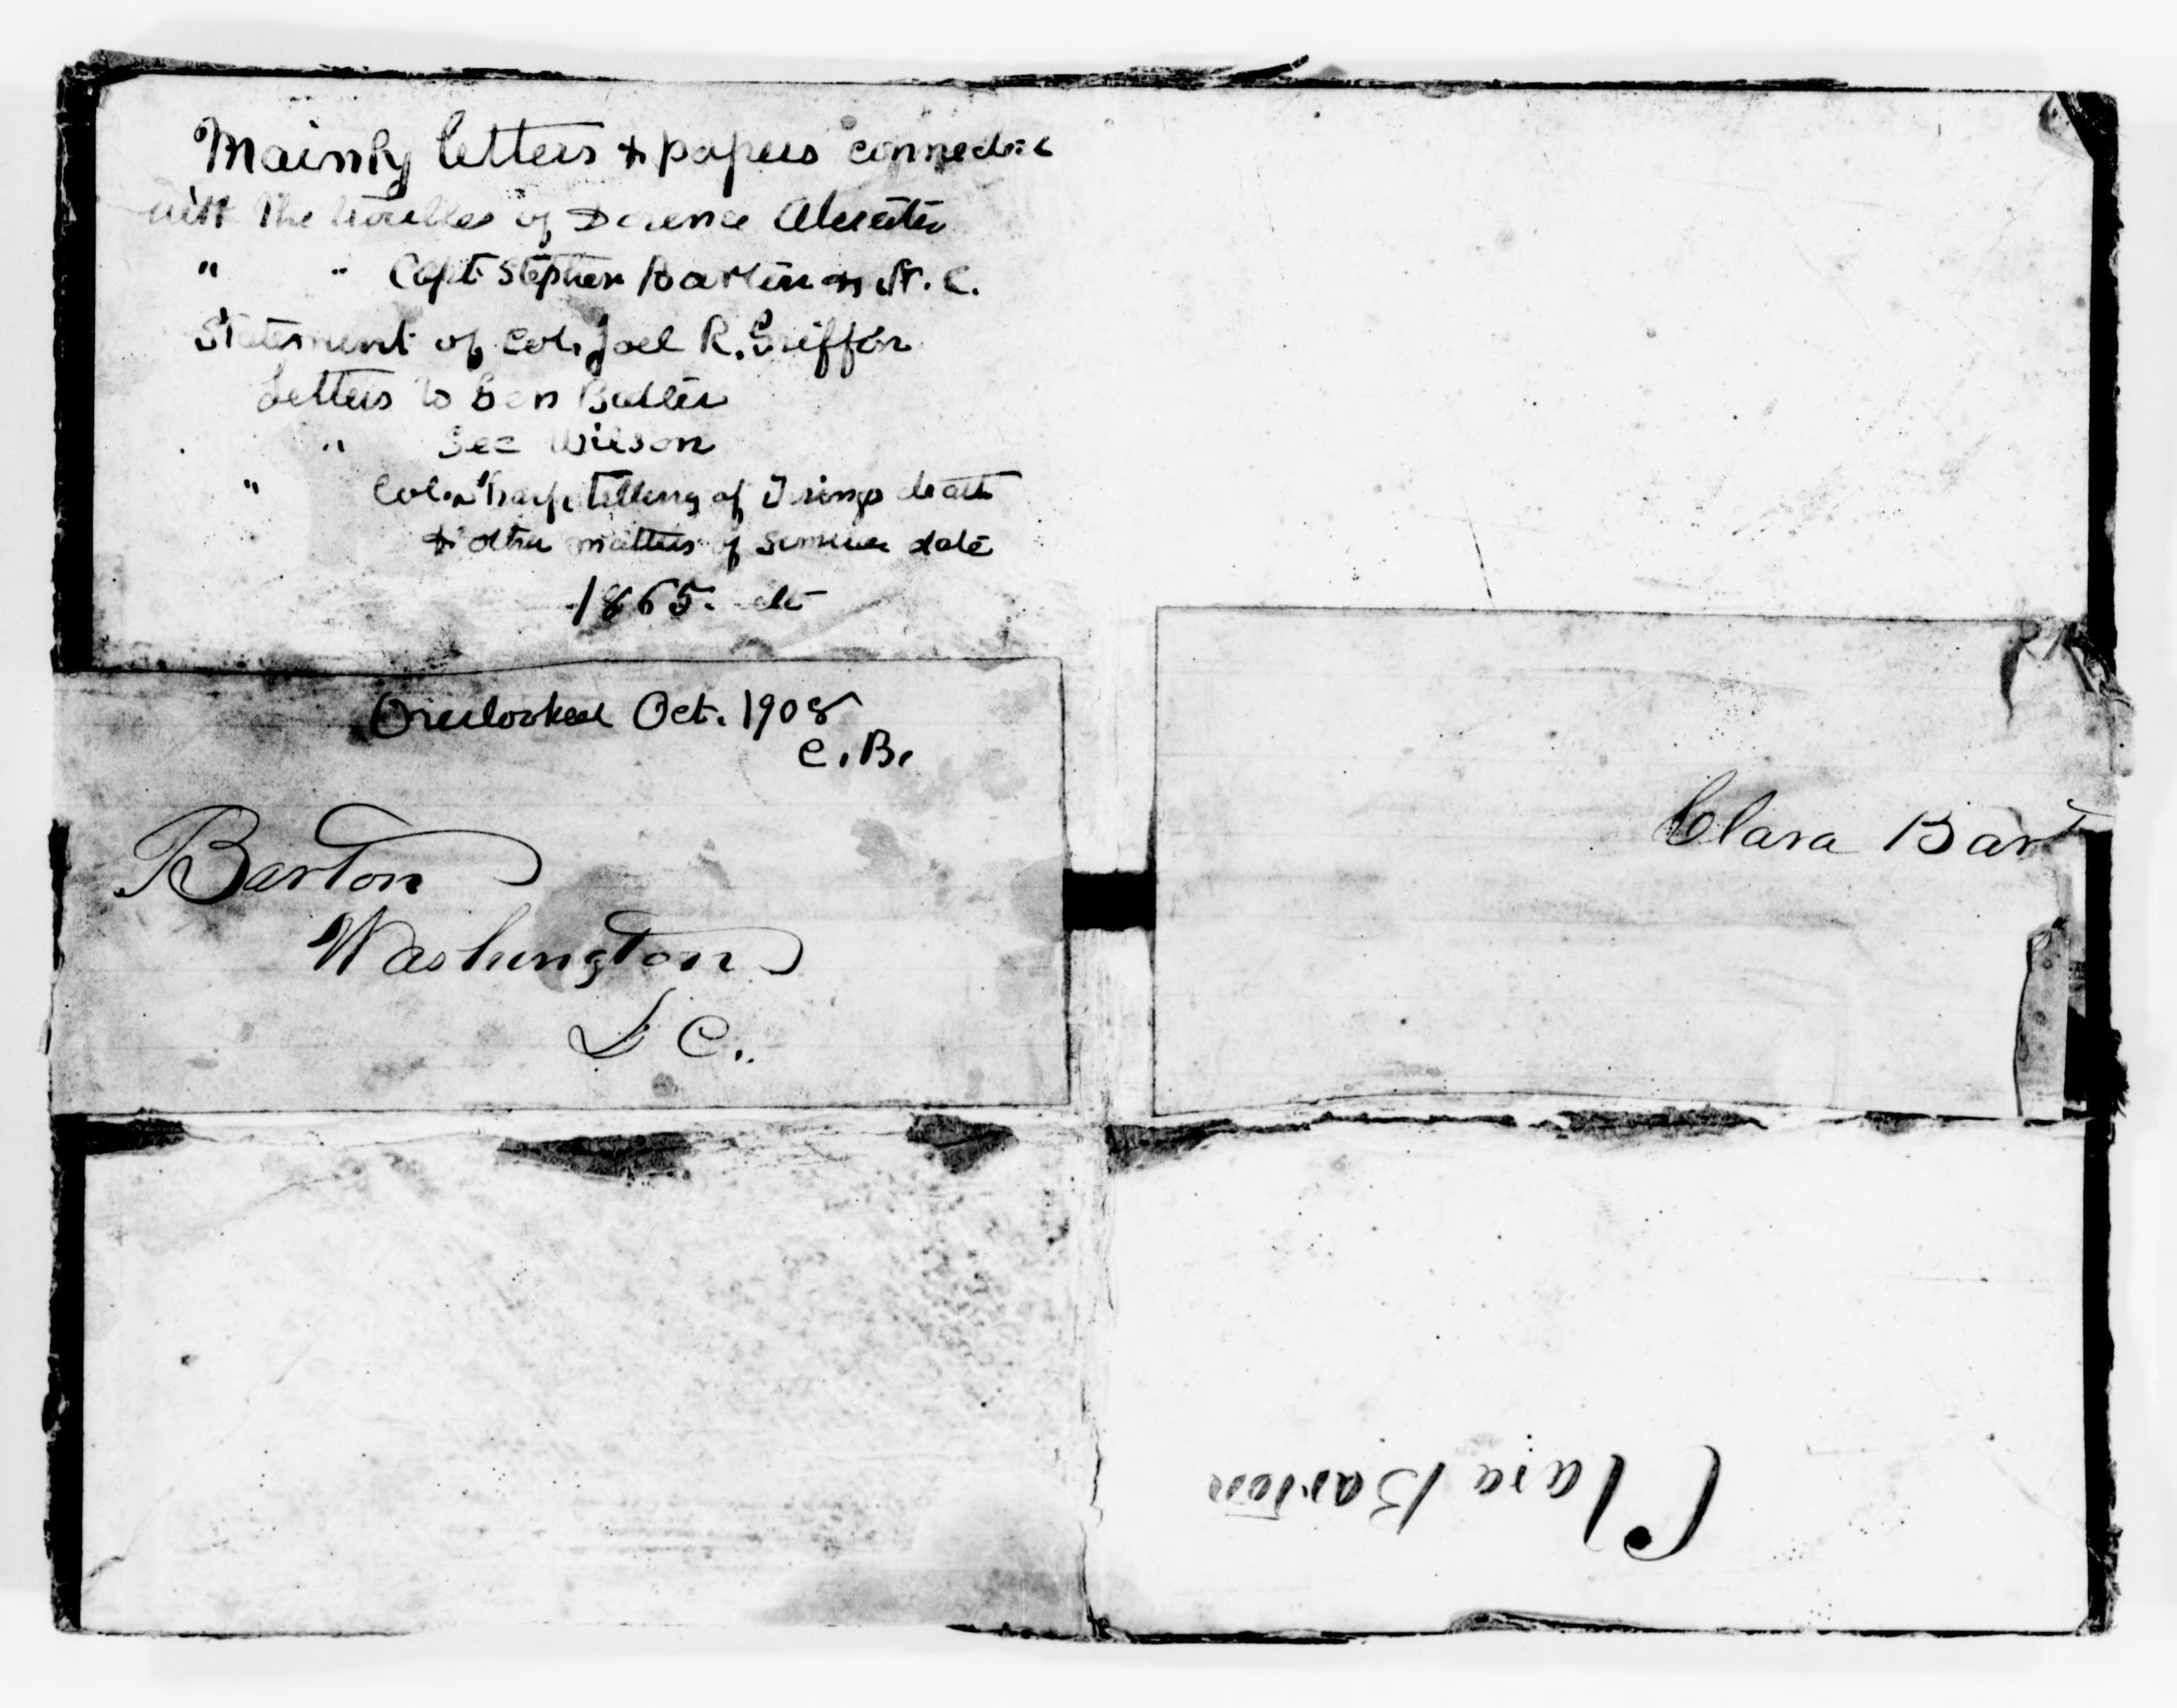 Mainly letters & papers connected
with the troubles of Dorence Atwater
" " Capt Stephen Barton in N. C.
Statement of Col. Joel R. Griffin
Letters to Gen Butler
" Sec Wilson
" Col. telling of Irvings death
& other matters of similar date
1865. etc
Overlooked Oct. 1908
C. B.
Barton
Washington
D C.
Clara Bart
Clara Barton